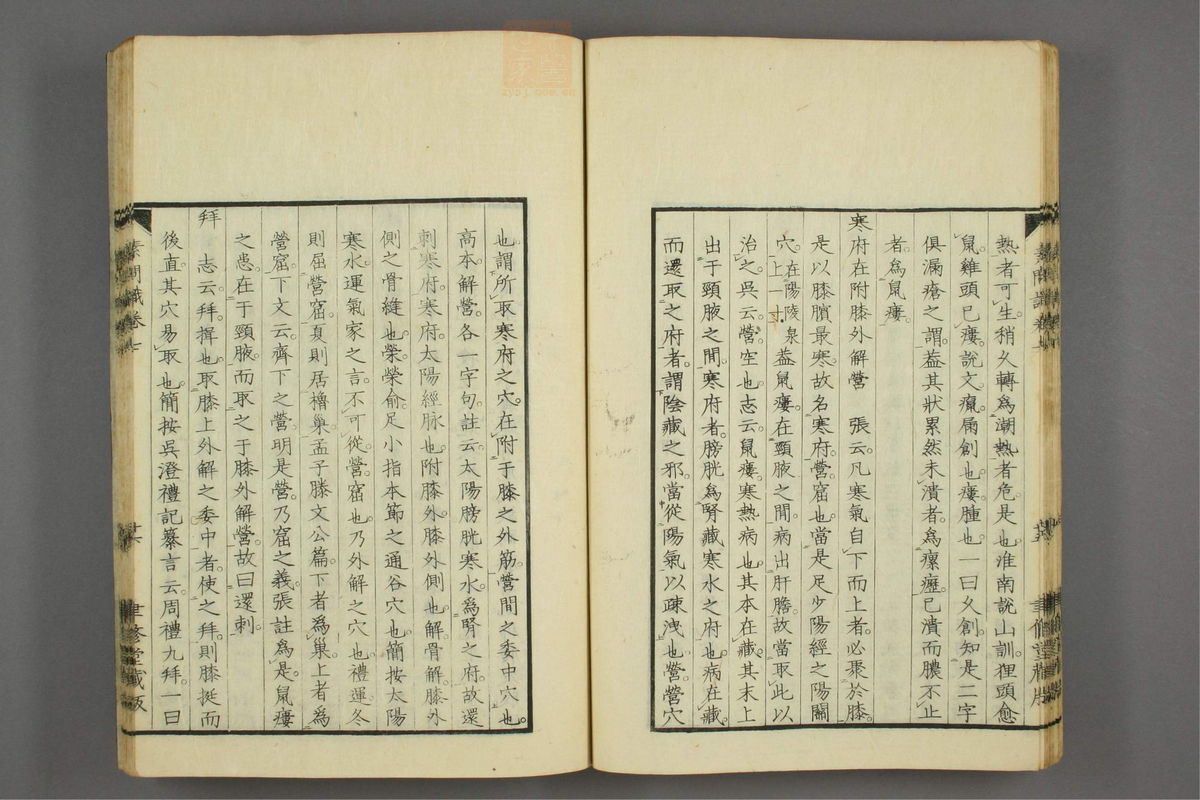 熱者可生稍久轉為潮熱者危是也淮南說山訓狸頭愈
鼠雞頭已瘻說文瘺屚創也瘻腫也一曰久創知是二字
俱漏瘡之謂葢其狀累然未潰者為瘰癧已潰而膿不止
者為鼠瘻
寒府在附膝外解營　張云凡寒氣自下而上者必聚於膝
是以膝髕最寒故名寒府營窟也當是足少陽經之陽關
穴在陽陵泉上一寸葢鼠瘻在頸腋之間病出肝膽故當取此以
治之吳云營空也志云鼠瘻寒熱病也其本在藏其末上
出于頸腋之間寒府者膀胱為腎藏寒水之府也病在藏
而還取之府者謂陰藏之邪當從陽氣以疎洩也營營穴
也謂所取寒府之穴在附于膝之外筋營間之委中穴也
高本解營各一字句註云太陽膀胱寒水為腎之府故還
刺寒府寒府太陽經脉也附膝外膝外側也解骨解膝外
側之骨縫也榮榮俞足小指本節之通谷穴也簡按太陽
寒水運氣家之言不可從營窟也乃外解之穴也禮運冬
則居營窟夏則居橧巢孟子滕文公篇下者為巢上者為
營窟下文云齊下之營明是營乃窟之義張註為是鼠瘻
之患在于頸腋而取之于膝外解營故曰還刺
拜　志云拜揖也取膝上外解之委中者使之拜則膝挺而
後直其穴易取也簡按吳澄禮記纂言云周禮九拜一曰
素問識卷七
聿修堂藏版